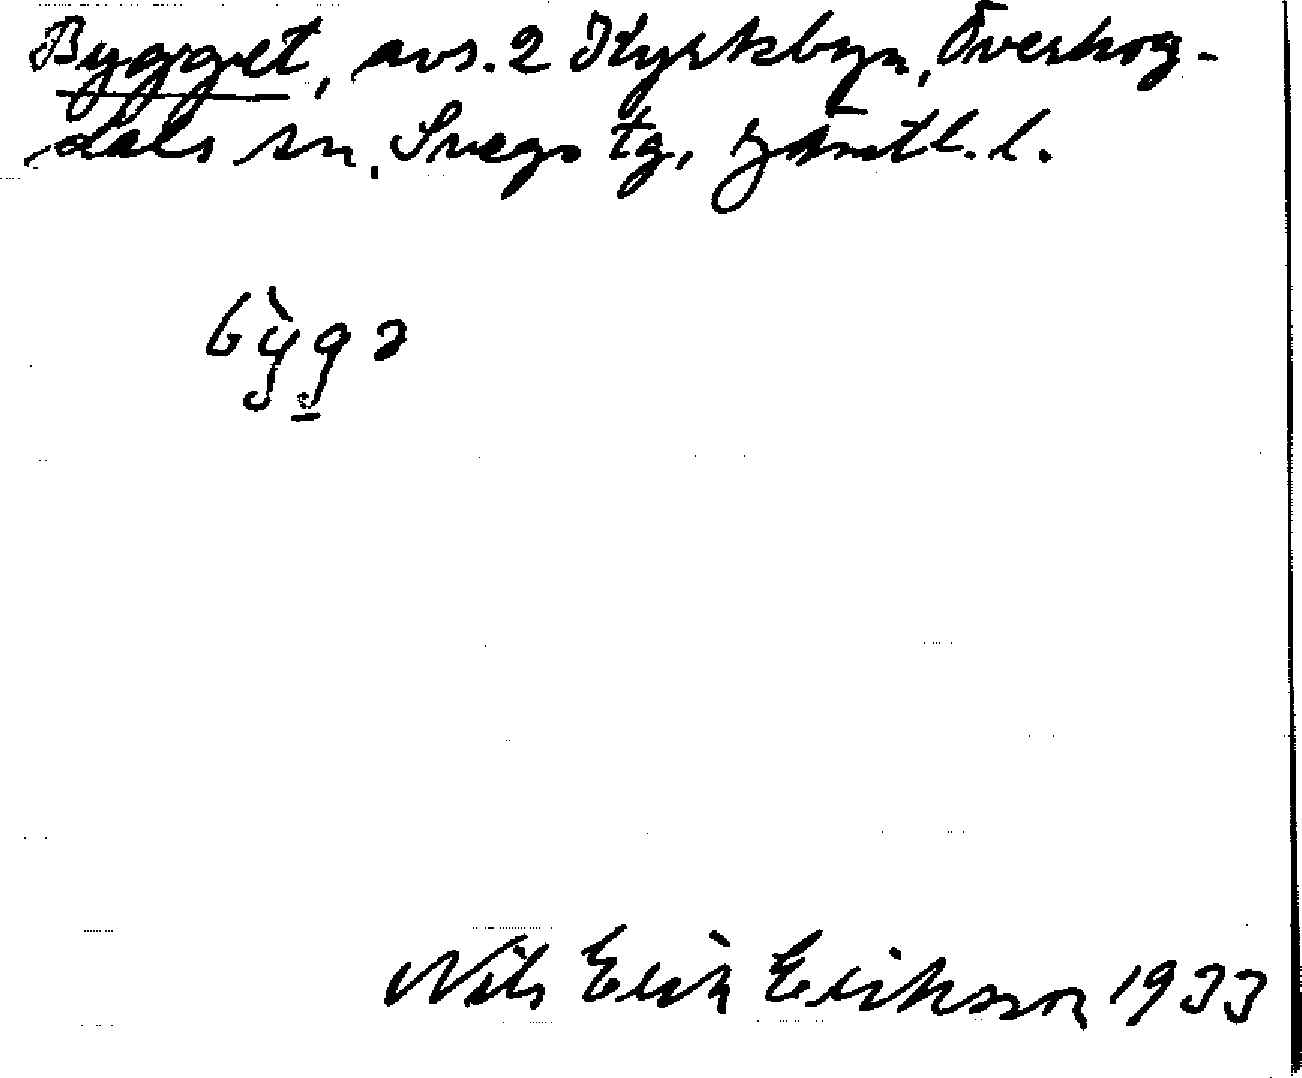 Bygget, avs. 2 Kyrkbyn, Överhog-
dals sn, Svegs tg, Jämtl. l.
bỳg̲ə
Nils Erik Eriksson 1933